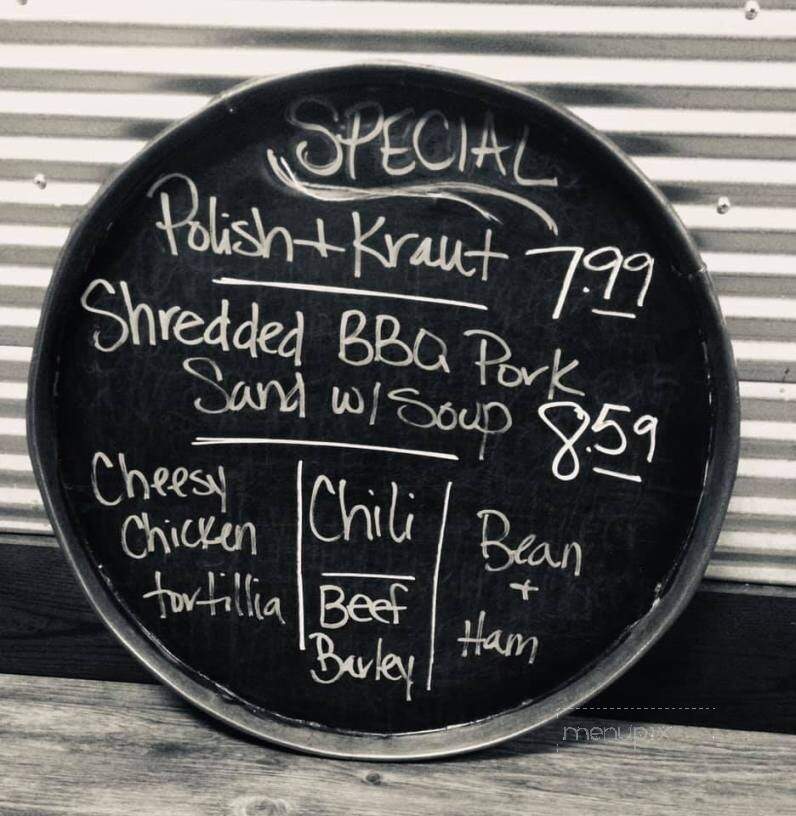 SPECIAL
Polish + Kraut 7.99
Shredded BBQ Pork
Sand w/ Soup 8.59
Cheesy
Chicken
tortillia
Chili
Beef
Barley
Bean
+
Ham
menupix